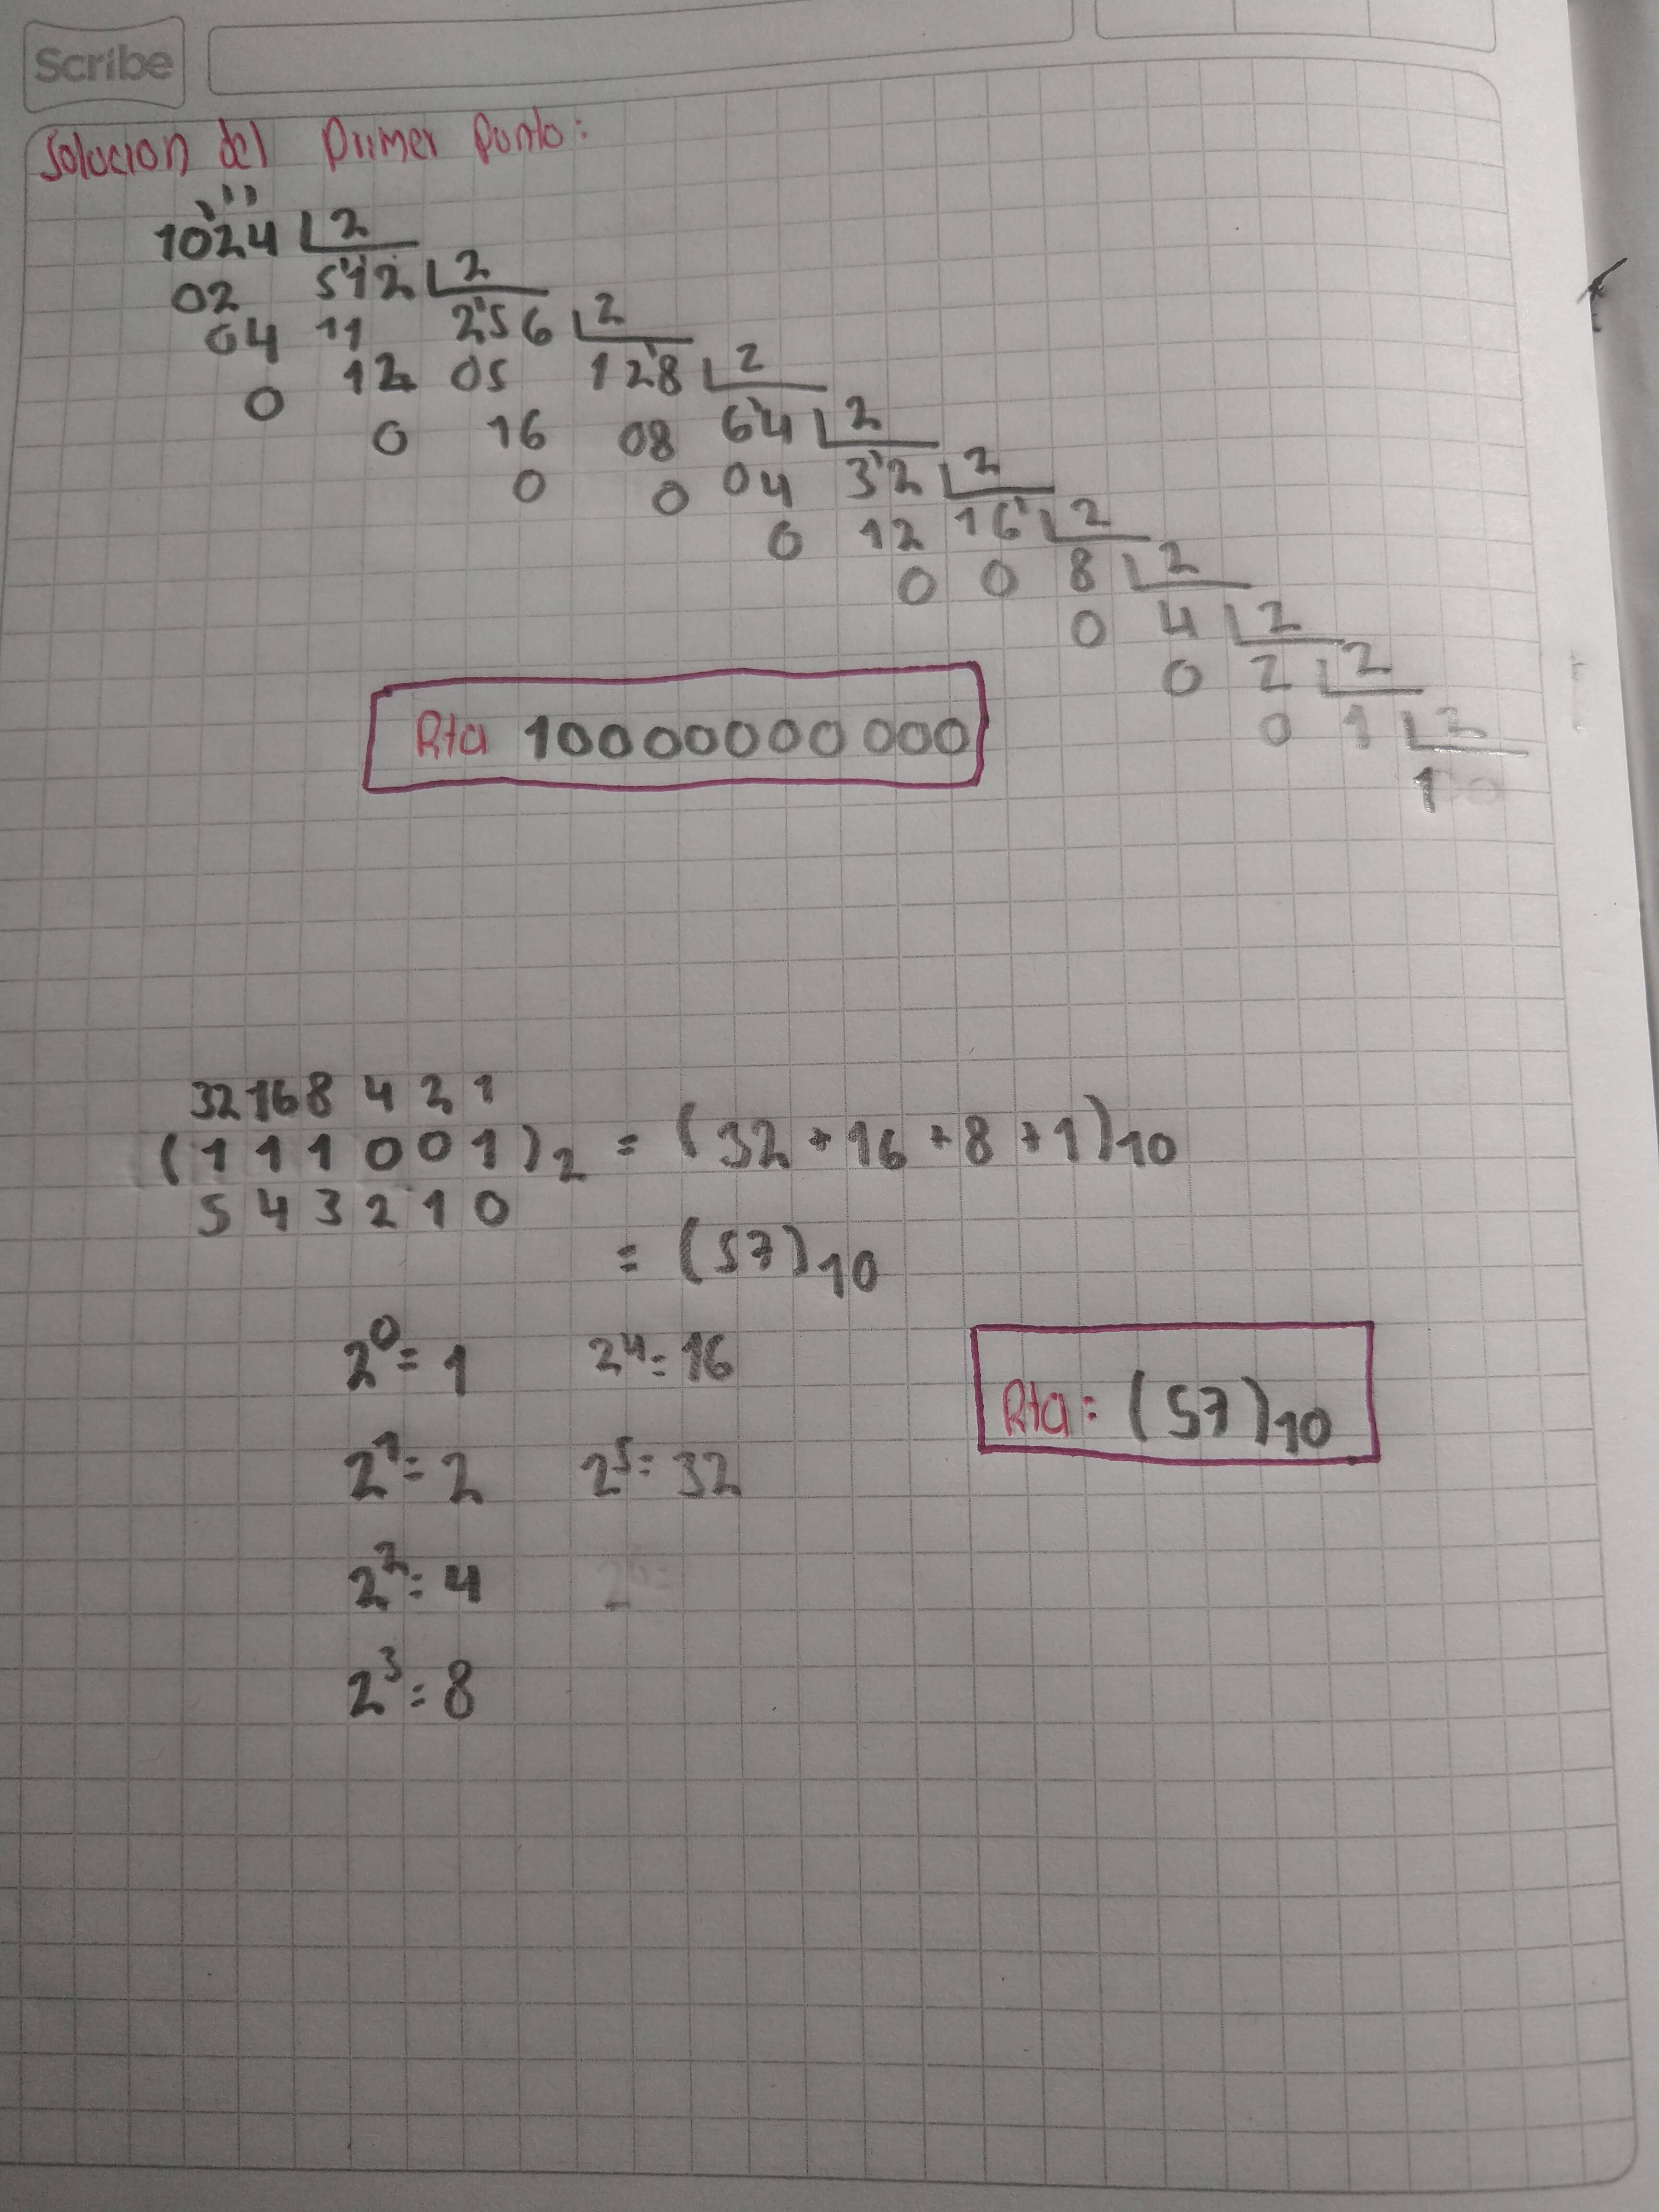 Scribe
Solucion del Primer Punto:
1024 2
02 512 2
04 11 256 2
0 12 05 128 2
0 16 08 64 2
0 0 04 32 2
0 12 16 2
0 0 8 2
0 4 2
0 2 2
0 1 2
1
Rta 10000000000
32 16 8 4 2 1
(1 1 1 0 0 1)2 = (32 + 16 + 8 + 1)10
5 4 3 2 1 0
= (57)10
2^0 = 1 2^4 = 16
2^1 = 2 2^5 = 32
2^2 = 4
2^3 = 8
Rta: (57)10